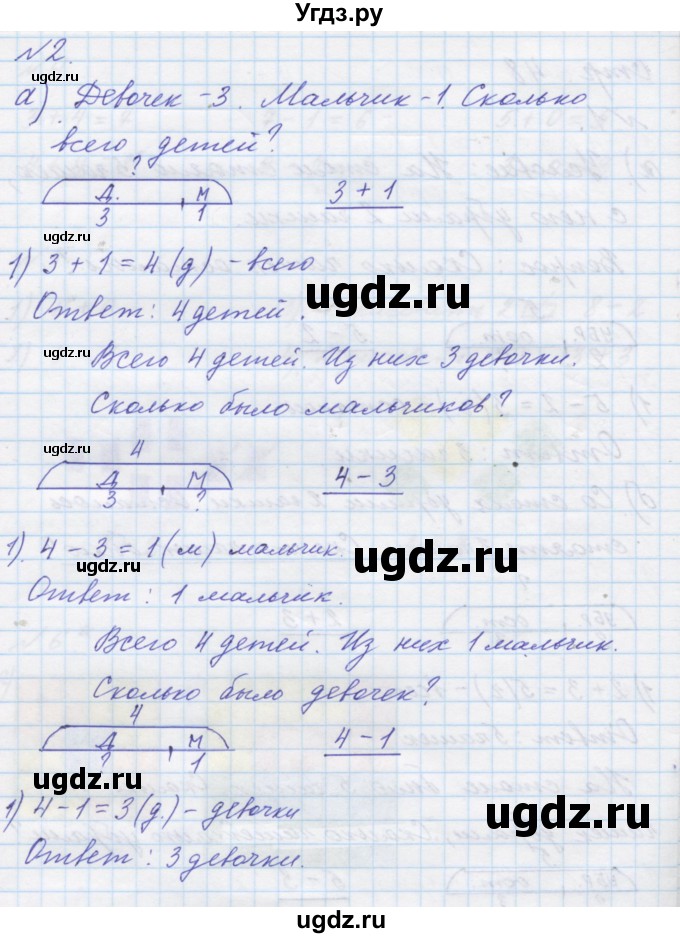 Угдз.ру
№2.
а) Девочек - 3. Мальчик - 1. Сколько
всего детей?
?
Д. М
3 1
3 + 1
ugdz.ru
ugdz.ru
ugdz.ru
1) 3 + 1 = 4 (д) - всего
ugdz.ru
Ответ: 4 детей.
ugdz.ru
Всего 4 детей. Из них 3 девочки.
Сколько было мальчиков?
ugdz.ru
4
Д М
3 ?
4 - 3
ugdz.ru
1). 4 - 3 = 1 (м) мальчик.
ugdz.ru
Ответ: 1 мальчик.
Всего 4 детей. Из них 1 мальчик.
ugdz.ru
Сколько было девочек?
4
Д М
? 1
4 - 1
ugdz.ru
1) 4 - 1 = 3 (д.) - девочки
ugdz.ru
Ответ: 3 девочки.
ugdz.ru